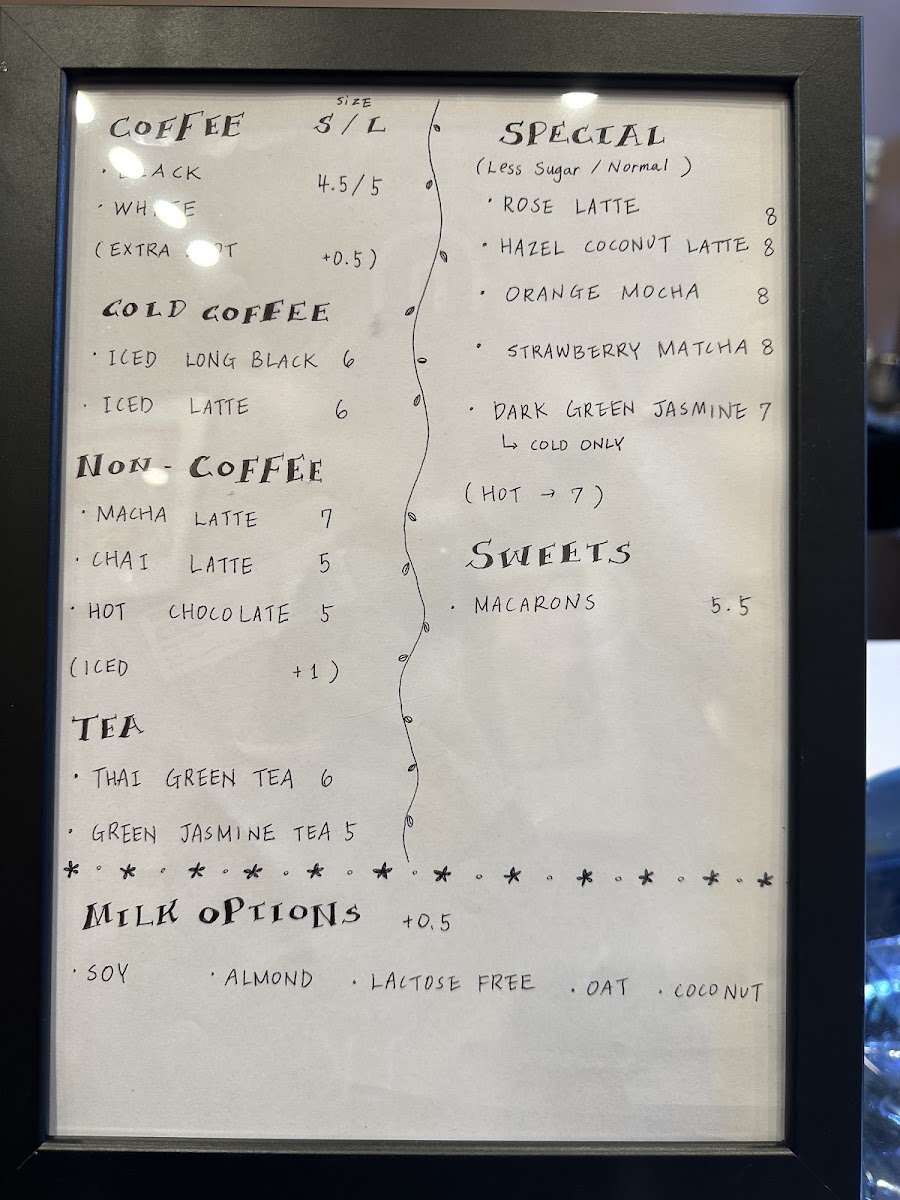 SIZE
COFFEE S / L
· BLACK
4.5/5
· WHITE
(EXTRA +0.5)
COLD COFFEE
· ICED LONG BLACK 6
· ICED LATTE 6
NON - COFFEE
· MACHA LATTE 7
· CHAI LATTE 5
· HOT CHOCOLATE 5
(ICED +1)
TEA
· THAI GREEN TEA 6
· GREEN JASMINE TEA 5
SPECIAL
(Less Sugar / Normal )
· ROSE LATTE 8
· HAZEL COCONUT LATTE 8
· ORANGE MOCHA 8
· STRAWBERRY MATCHA 8
· DARK GREEN JASMINE 7
↳ COLD ONLY
(HOT → 7)
SWEETS
· MACARONS 5.5
MILK OPTIONS +0.5
· SOY · ALMOND · LACTOSE FREE · OAT · COCONUT